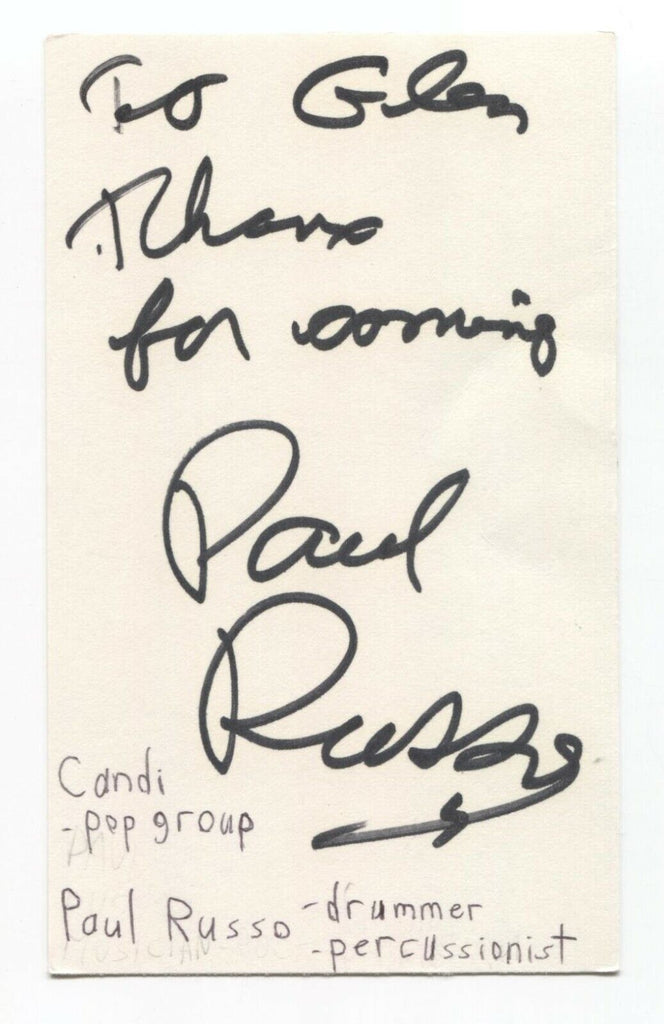 To Glen
Thanx
for coming
Paul
Russo
Candi
-pop group
Paul Russo -drummer
-percussionist
MUSICIAN